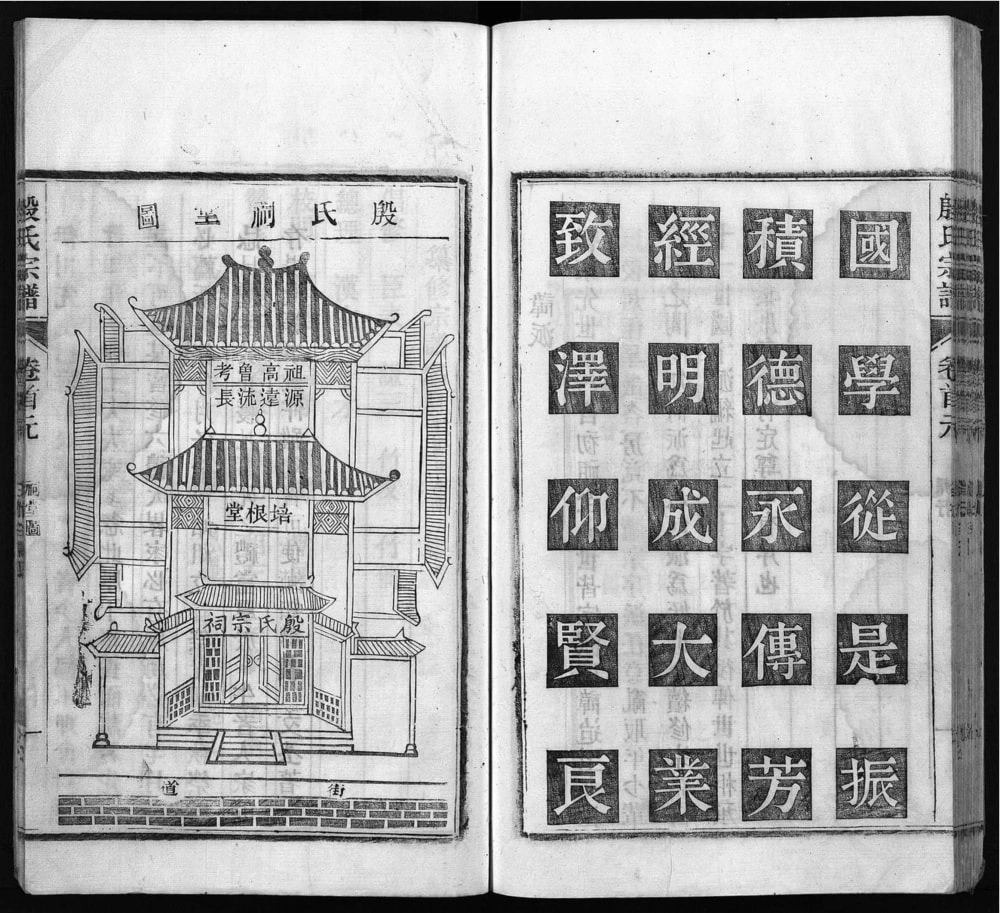 殷氏宗譜
卷首元
國學從是振
積德永傳芳
經明成大業
致澤仰賢良
殷氏祠堂圖
祖高曾考
源遠流長
培根堂
殷氏宗祠
街道
殷氏宗譜
卷首元
祠堂圖